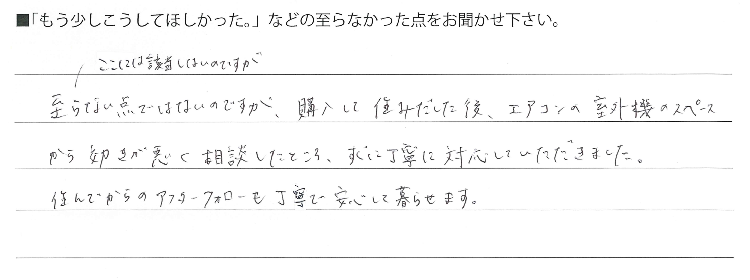 ■「もう少しこうしてほしかった。」などの至らなかった点をお聞かせ下さい。
ここには該当しないのですが
至らない点ではないのですが、購入して住みだした後、エアコンの室外機のスペース
から効きが悪く相談したところ、すぐに丁寧に対応していただきました。
住んでからのアフターフォローも丁寧で安心して暮らせます。